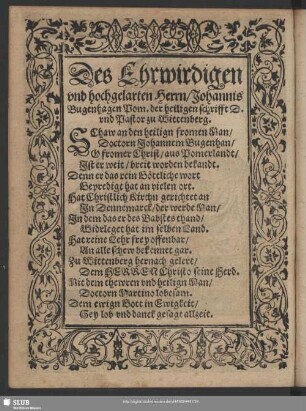 Des Ehrwirdigen
vnd hochgelarten Herrn/Johannis
Bugenhagen Pom. der heiligen schrifft D.
vnd Pastor zu Wittenberg.
SChaw an den heilign fromen Man/
Doctorn Johannem Bugenhan/
O fromer Christ/aus Pomerlandt/
Ist er weit/breit worden bekandt.
Denn er das rein Göttliche wort
Geprediget hat an vielen ort.
Hat Christlich Kirchn gerichtet an
In Dennemarck/der werde Man/
In dem das er des Babstes thand/
Widrleget hat im selben Land.
Hat reine Lehr frey offenbar/
An alle schew bekennet gar.
Zu Wittenberg hernach gelert/
Dem HERREN Christo seine Herd.
Mit dem thewren vnd heilign Man/
Doctorn Martino lobesam.
Dem ewign Gott in Ewigkeit/
Sey lob vnd danck gesagt allzeit.
SLUB
Wir führen Wissen.